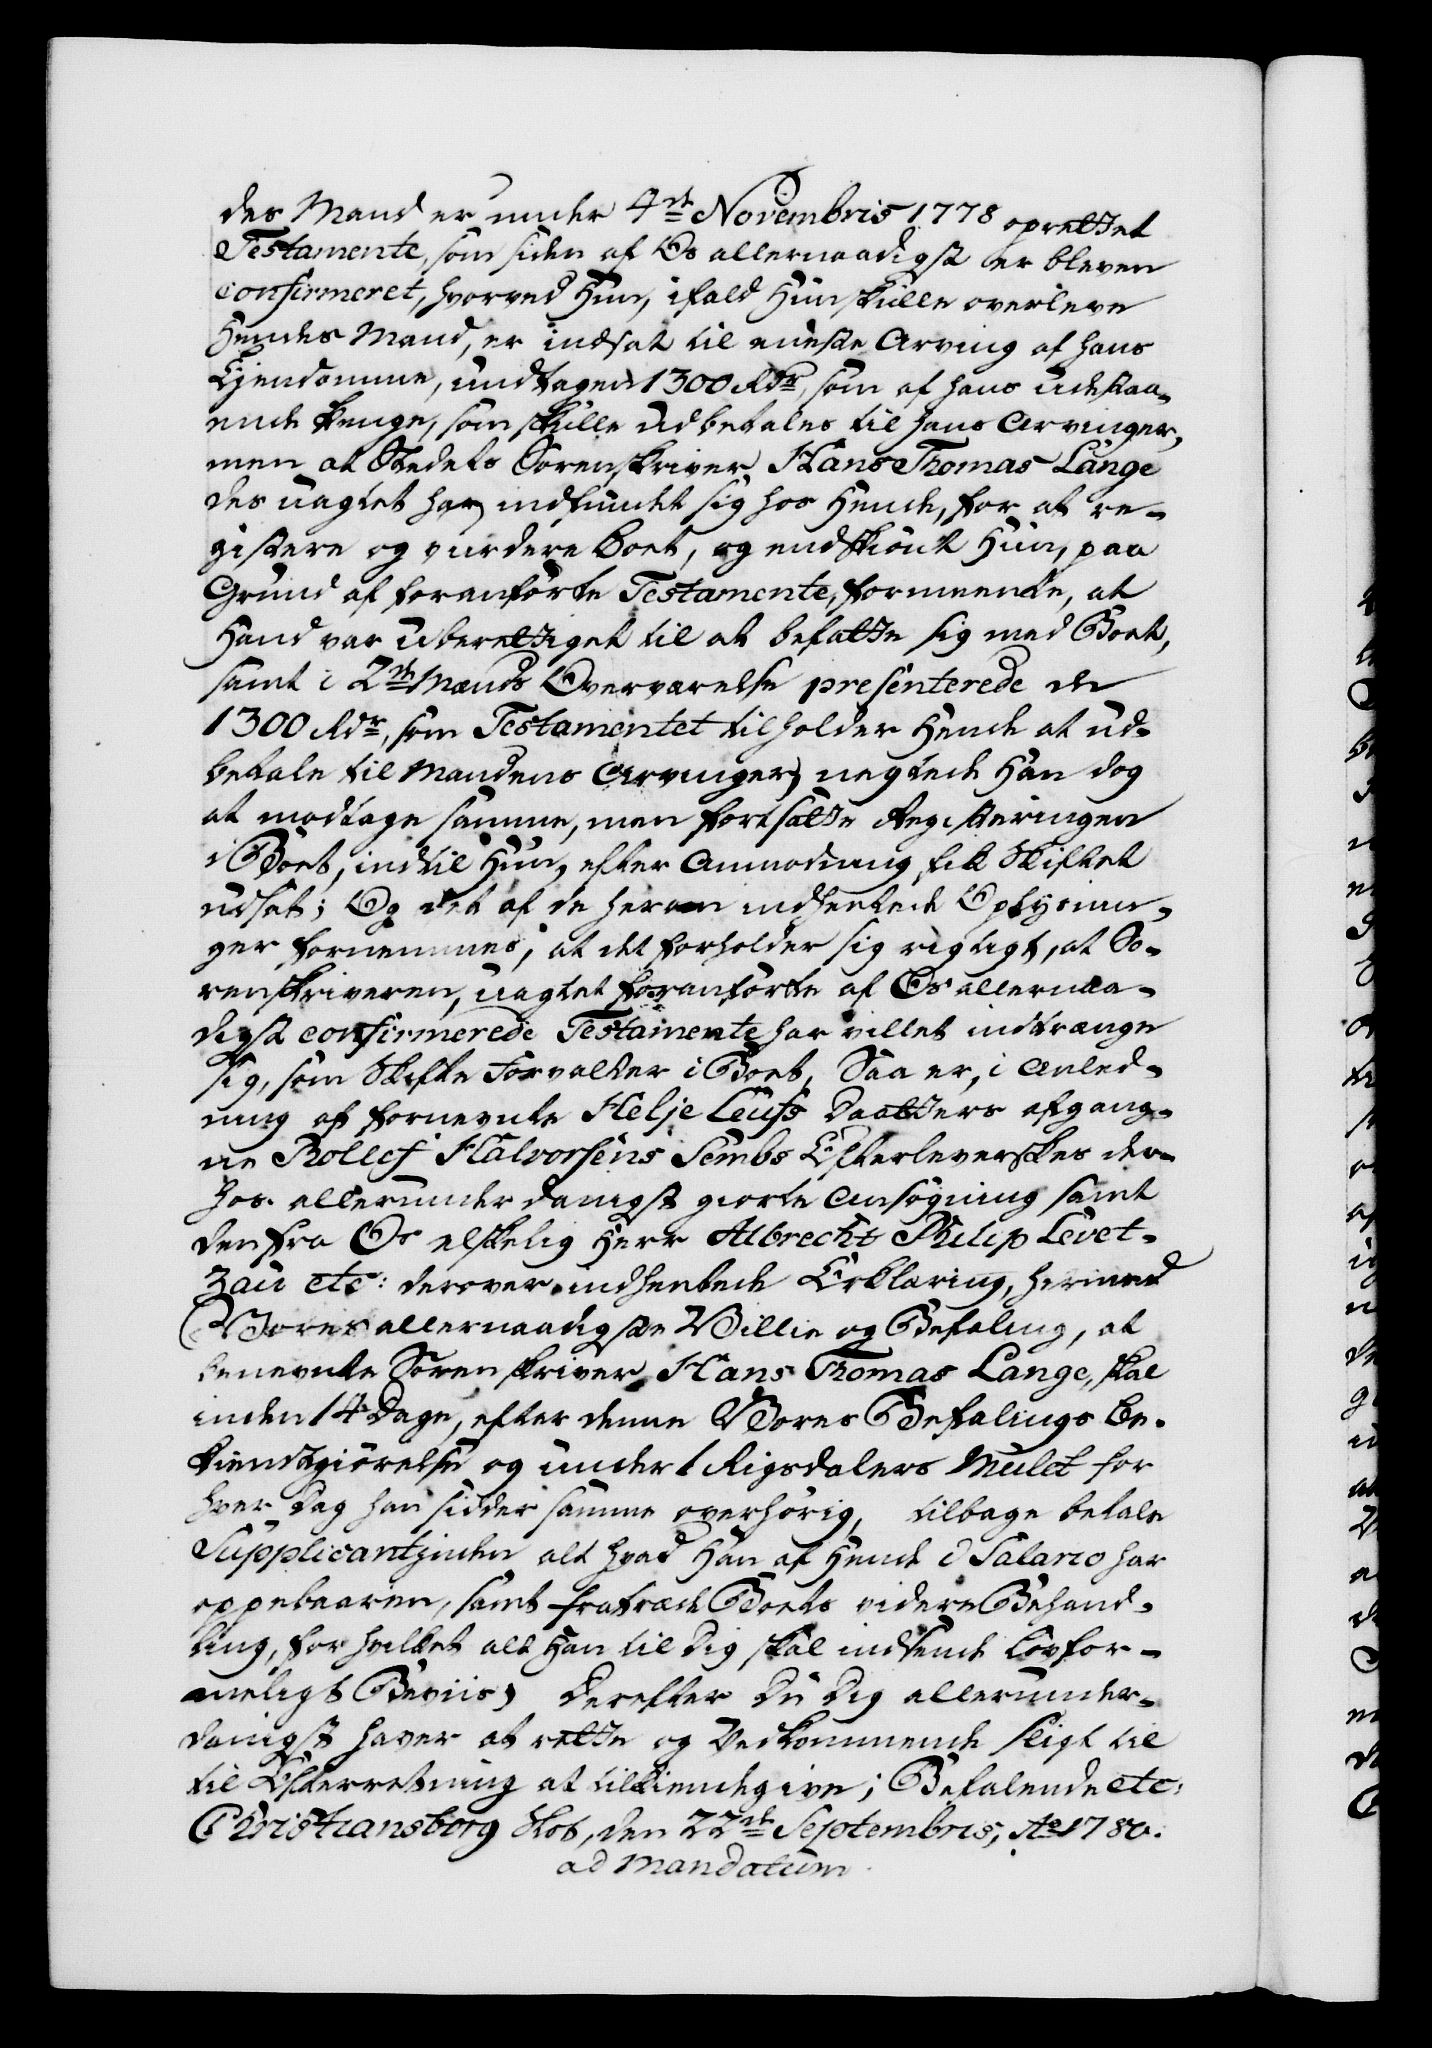 des Mand er under 4de Novembris 1778 oprettet
Testamente, som siden af Os allernaadigst er bleven
confirmeret, hvorved Hun, ifald Hun skulle overleve
Hendes Mand, er indsat til eneste Arving af hans
Ejendomme, undtagen 1300 Rdr, som af hans udestaa-
ende Penge, som skulle udbetales til hans Arvinger,
men at Stedets Sorenskriver Hans Thomas Lange
des uagtet har indfundet sig hos Hende, for at re-
gistere og vurdere Boet, og endskiønt Hun, paa
Grund af foranførte Testamente, formeente, at
Hand var uberettiget til at befatte sig med Boet,
samt i 2de Mænds Overværelse presenterede de
1300 Rdr, som Testamentet tilholder Hende at ud-
betale til Mandens Arvinger, negtede Han dog
at modtage samme, men fortsatte Registeringen
i Boet, indtil Hun, efter Anmodning, fik Skiftet
udsat; Og det af de herom indhentede Oplysnin-
ger fornemmes, at det forholder sig rigtigt, at So-
renskriveren, uagtet foranførte af Os allernaa-
digst confirmerede Testamente har villet indtrænge
sig, som Skifte Forvalter i Boet, Saa er, i Anled-
ning af fornevnte Helje Leufs Daatters afgang-
ne Rollef Halvorsens Sembs Efterleverskes der-
hos allerunderdanigst giorte Ansøgning samt
den fra Os elskelig Herr Albrecht Philip Levet-
zau etc: derover indhentede Erklæring, hermed
Vores allernaadigste Villie og Befaling, at
benevnte Sorenskriver Hans Thomas Lange, skal
inden 14 Dage, efter denne Vores Befalings Be-
kiendtgiørelse og under 1 Rigsdalers Mulct for
hver Dag han sidder samme overhørig, tilbage betale
Supplicantinden alt hvad Han af Hende i Salario har
oppebaaren, samt fratræde Boets videre Behand-
ling, for hvilket alt Han til Dig skal indsende lovfor-
meligt Beviis; Derefter Du Dig allerunder-
danigst haver at rette og Vedkommende sligt til
til Efterretning at tilkiendegive; Befalende etc:
Christiansborg Slot, den 22de Septembris, Ao 1780.
ad Mandatum